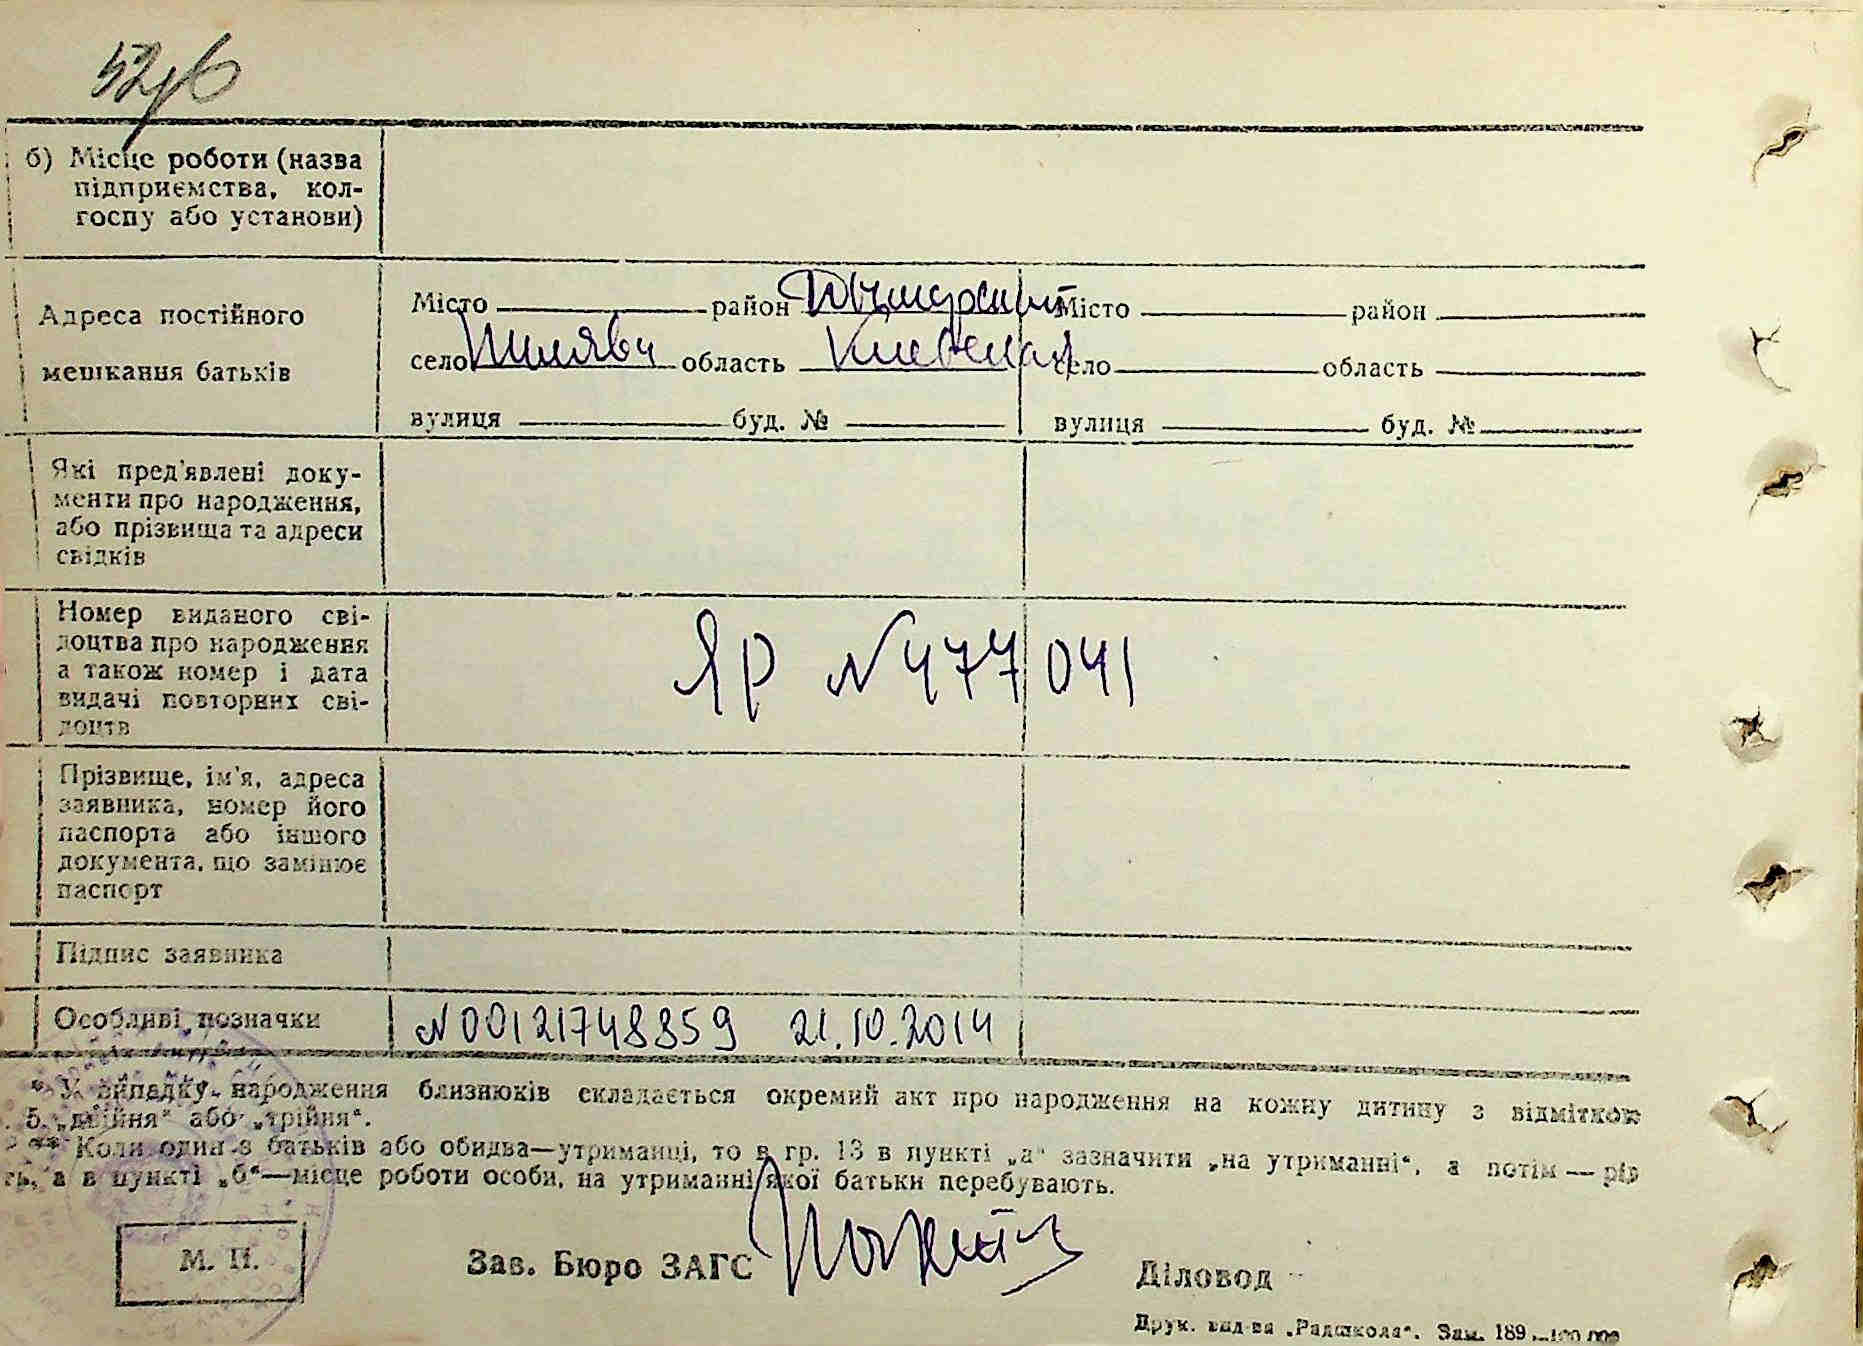 б) Місце роботи (назва
підприємства, кол-
госпу або установи)
Адреса постійного
мешкання батьків
Місто район Місто район
село область село область
вулиця буд. № вулиця буд. №
Які пред'явлені доку-
менти про народження,
або прізвища та адреси
свідків
Номер виданого сві-
доцтва про народження
а також номер і дата
видачі повторних сві-
доцтв
ЯР N 477041
Прізвище, ім'я, адреса
заявника, номер його
паспорта або іншого
документа, що замінює
паспорт
Підпис заявника
Особливі позначки
N 00121748859 21.10.2014
* У випадку народження близнюків складається окремий акт про народження на кожну дитину з відміткою
5. „двійня“ або „трійня“.
** Коли один з батьків або обидва—утриманці, то в гр. 13 в пункті „а“ зазначити „на утриманні“, а потім — рід
а в пункті „б“—місце роботи особи, на утриманні якої батьки перебувають.
М. П.
Зав. Бюро ЗАГС
Діловод
Друк. вид-ва „Радшкола“. Зам. 189